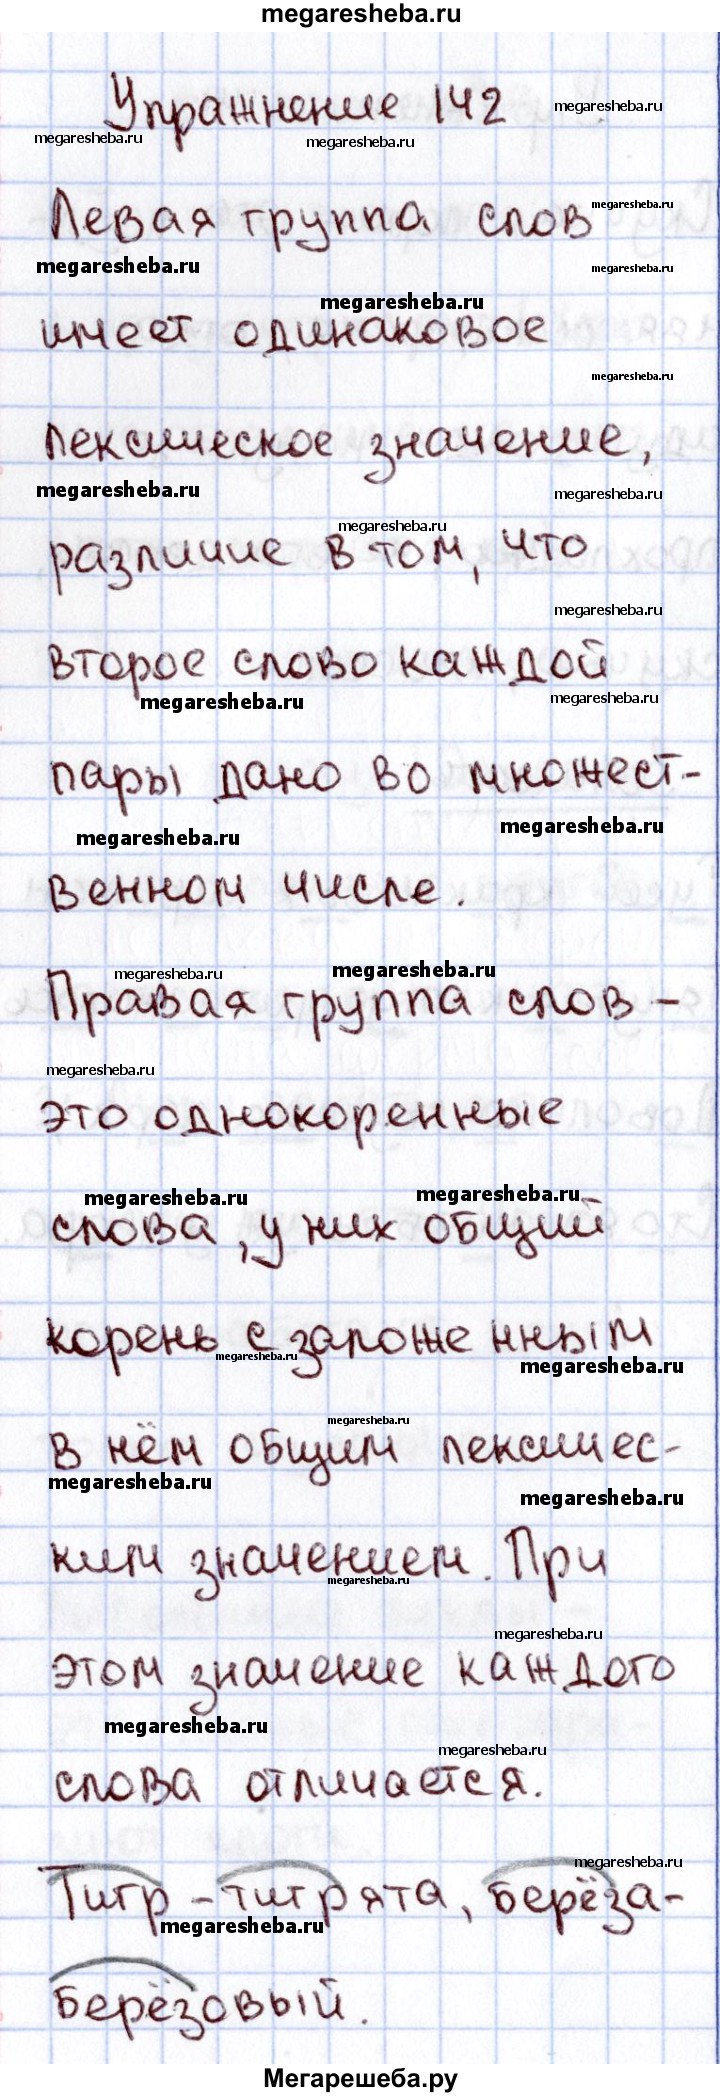 megaresheba.ru
Упражнение 142
megaresheba.ru
megaresheba.ru
megaresheba.ru
Левая группа слов
megaresheba.ru
megaresheba.ru
megaresheba.ru
megaresheba.ru
имеет одинаковое
megaresheba.ru
лексическое значение,
megaresheba.ru
megaresheba.ru
megaresheba.ru
различие в том, что
megaresheba.ru
второе слово каждой
megaresheba.ru
megaresheba.ru
пары дано во множест-
megaresheba.ru
megaresheba.ru
венном числе.
megaresheba.ru
megaresheba.ru
Правая группа слов -
megaresheba.ru
это однокоренные
megaresheba.ru
megaresheba.ru
слова, у них общий
корень с заложенным
megaresheba.ru
megaresheba.ru
megaresheba.ru
в нём общим лексичес-
megaresheba.ru
megaresheba.ru
ким значением. При
megaresheba.ru
megaresheba.ru
этом значение каждого
megaresheba.ru
megaresheba.ru
слова отличается.
megaresheba.ru
Тигр - тигрята, берёза-
megaresheba.ru
берёзовый.
Мегарешеба.ру